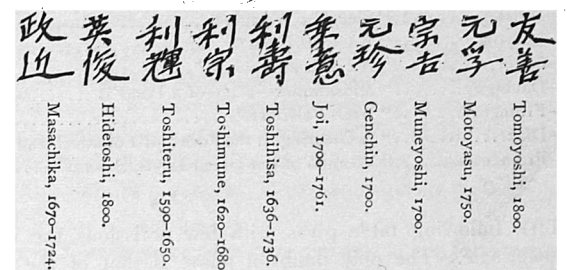 友善 Tomoyoshi, 1800.
元孚 Motoyasu, 1750.
宗吉 Muneyoshi, 1700.
元珍 Genchin, 1700.
乗意 Joi, 1700–1761.
利壽 Toshihisa, 1636–1736.
利宗 Toshimune, 1620–1680
利輝 Toshiteru, 1590–1650.
英俊 Hidetoshi, 1800.
政近 Masachika, 1670–1724.